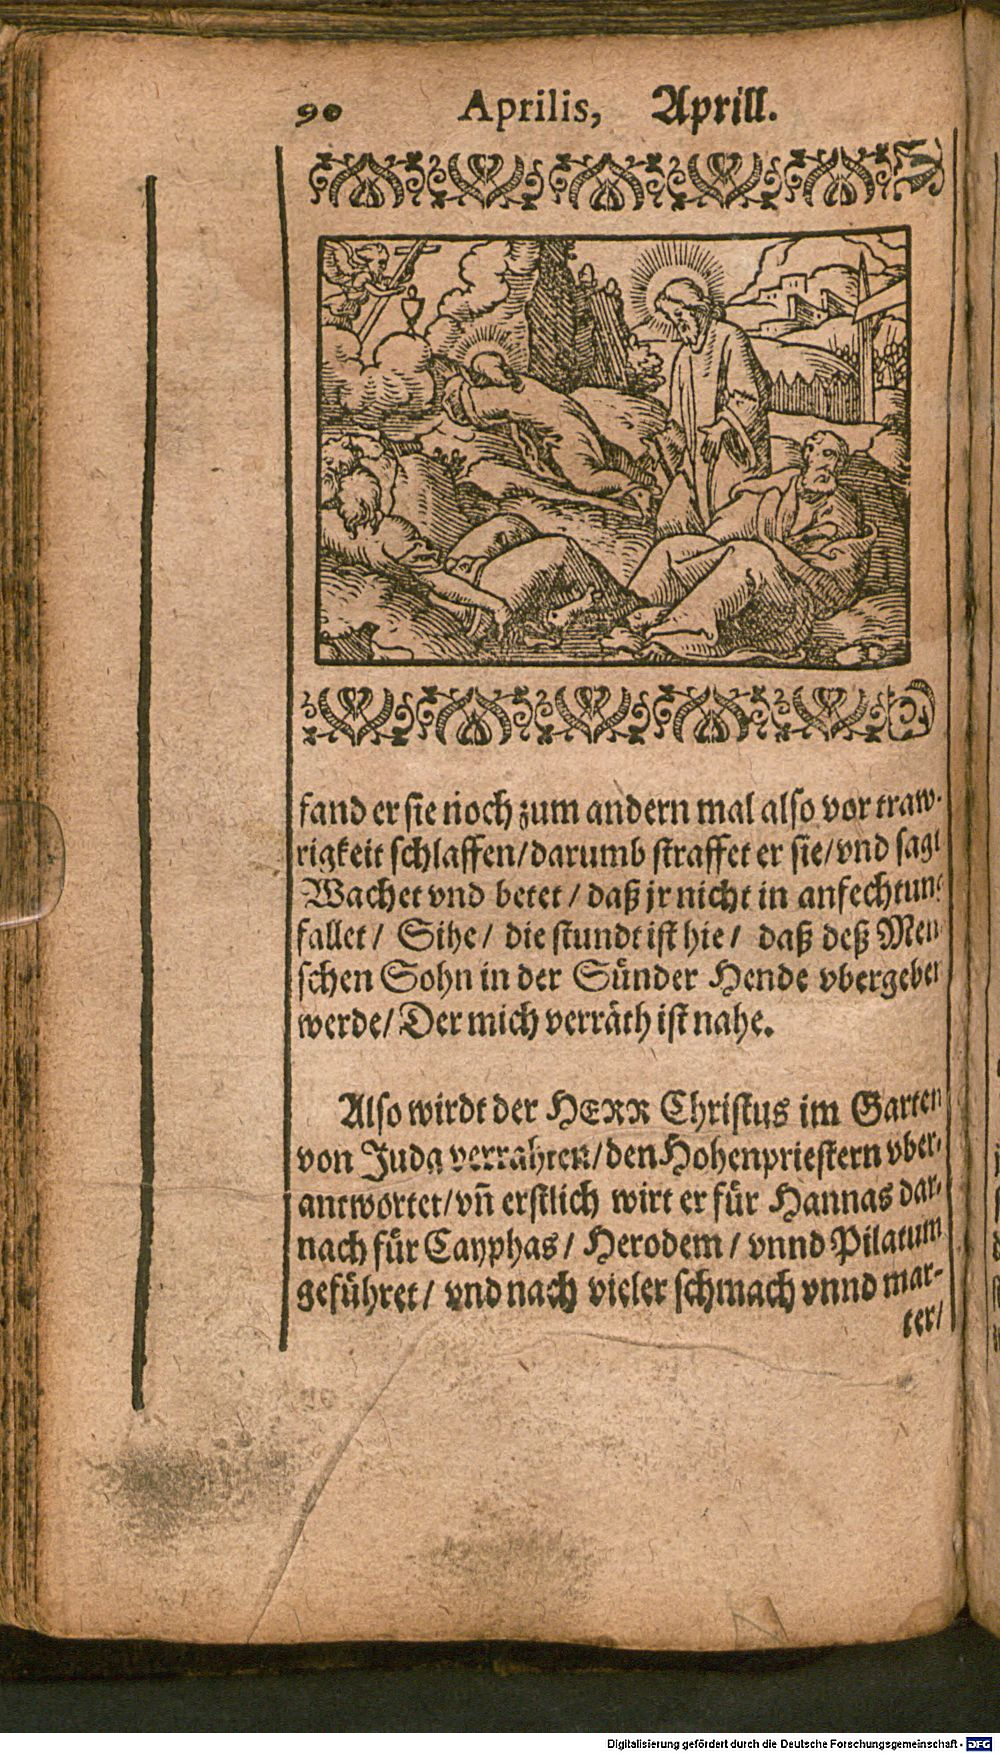 90 Aprilis, Aprill.
fand er sie noch zum andern mal also vor traw-
rigkeit schlaffen/darumb straffet er sie/vnd sagt
Wachet vnd betet / daß jr nicht in anfechtung
fallet / Sihe / die stundt ist hie / daß deß Men
schen Sohn in der Sünder Hende vbergeben
werde/ Der mich verräth ist nahe.
Also wirdt der HERR Christus im Garten
von Juda verrahten/den Hohenpriestern vber-
antwortet/vn̄ erstlich wirt er für Hannas dar-
nach für Cayphas / Herodem / vnnd Pilatum
geführet / vnd nach vieler schmach vnnd mar-
ter/
Digitalisierung gefördert durch die Deutsche Forschungsgemeinschaft - DFG